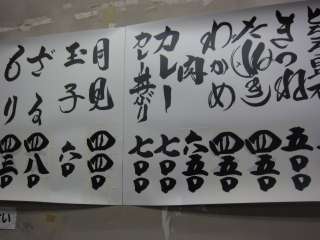 きつね 五〇〇
たぬき 四五〇
わかめ 四五〇
肉 六五〇
カレー 七〇〇
カレー 七〇〇
月見 四四〇
玉子 六〇
ざる 四八〇
もり 四三〇